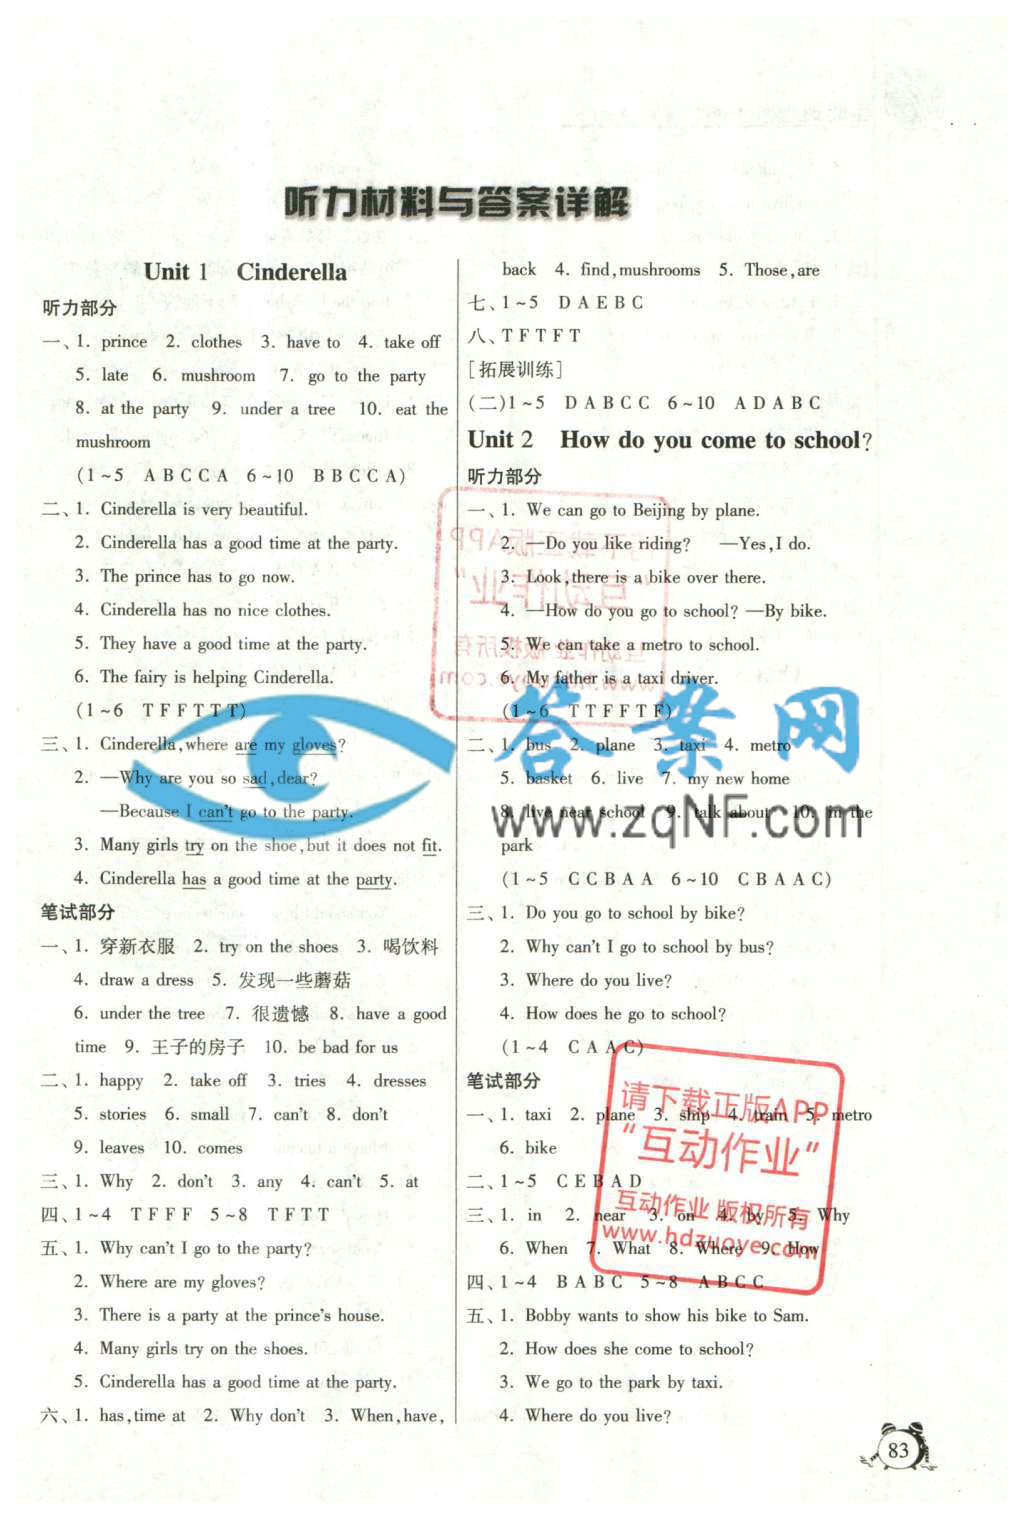 听力材料与答案详解
Unit 1 Cinderella
听力部分
一、1. prince 2. clothes 3. have to 4. take off
5. late 6. mushroom 7. go to the party
8. at the party 9. under a tree 10. eat the
mushroom
(1~5 A B C C A 6~10 B B C C A)
二、1. Cinderella is very beautiful.
2. Cinderella has a good time at the party.
3. The prince has to go now.
4. Cinderella has no nice clothes.
5. They have a good time at the party.
6. The fairy is helping Cinderella.
(1~6 T F F T T T)
三、1. Cinderella, where are my gloves?
2. —Why are you so sad, dear?
—Because I can't go to the party.
3. Many girls try on the shoe, but it does not fit.
4. Cinderella has a good time at the party.
笔试部分
一、1. 穿新衣服 2. try on the shoes 3. 喝饮料
4. draw a dress 5. 发现一些蘑菇
6. under the tree 7. 很遗憾 8. have a good
time 9. 王子的房子 10. be bad for us
二、1. happy 2. take off 3. tries 4. dresses
5. stories 6. small 7. can't 8. don't
9. leaves 10. comes
三、1. Why 2. don't 3. any 4. can't 5. at
四、1~4 T F F F 5~8 T F T T
五、1. Why can't I go to the party?
2. Where are my gloves?
3. There is a party at the prince's house.
4. Many girls try on the shoes.
5. Cinderella has a good time at the party.
六、1. has, time at 2. Why don't 3. When, have,
back 4. find, mushrooms 5. Those, are
七、1~5 D A E B C
八、T F T F T
[拓展训练]
(二)1~5 D A B C C 6~10 A D A B C
Unit 2 How do you come to school?
听力部分
一、1. We can go to Beijing by plane.
2. —Do you like riding? —Yes, I do.
3. Look, there is a bike over there.
4. —How do you go to school? —By bike.
5. We can take a metro to school.
6. My father is a taxi driver.
(1~6 T T F F T F)
二、1. bus 2. plane 3. taxi 4. metro
5. basket 6. live 7. my new home
8. live near school 9. talk about 10. in the
park
(1~5 C C B A A 6~10 C B A A C)
三、1. Do you go to school by bike?
2. Why can't I go to school by bus?
3. Where do you live?
4. How does he go to school?
(1~4 C A A C)
笔试部分
一、1. taxi 2. plane 3. ship 4. train 5. metro
6. bike
二、1~5 C E B A D
三、1. in 2. near 3. on 4. by 5. Why
6. When 7. What 8. Where 9. How
四、1~4 B A B C 5~8 A B C C
五、1. Bobby wants to show his bike to Sam.
2. How does she come to school?
3. We go to the park by taxi.
4. Where do you live?
83
答案网
www.zqNF.com
请下载正版APP
"互动作业"
互动作业 版权所有
www.hdzuoye.com